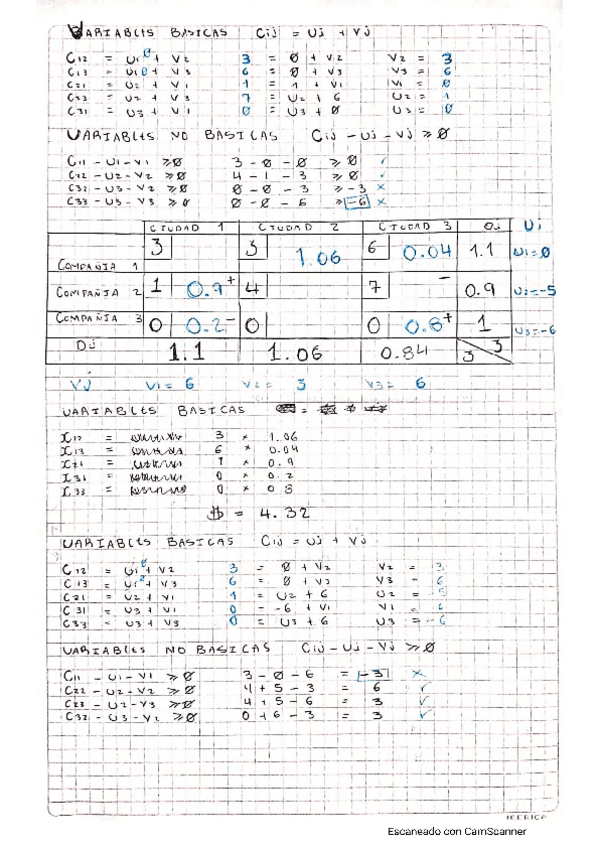 VARIABLES BASICAS Cij = Ui + Vj
C12 = U1 0 + V2 3 = 0 + V2 V2 = 3
C13 = U1 0 + V3 6 = 0 + V3 V3 = 6
C21 = U2 + V1 1 = 1 + V1 V1 = 0
C23 = U2 + V3 7 = U2 + 6 U2 = 1
C31 = U3 + V1 0 = U3 + 0 U3 = 0
VARIABLES NO BASICAS Cij - Ui - Vj ≥ 0
C11 - U1 - V1 ≥ 0 3 - 0 - 0 ≥ 0 ✓
C22 - U2 - V2 ≥ 0 4 - 1 - 3 ≥ 0 ✓
C32 - U3 - V2 ≥ 0 0 - 0 - 3 ≥ -3 ×
C33 - U3 - V3 ≥ 0 0 - 0 - 6 ≥ -6 ×
CIUDAD 1 CIUDAD 2 CIUDAD 3 Oi Ui
COMPAÑIA 1 3 3 1.06 6 0.04 1.1 U1=0
COMPAÑIA 2 1 0.9 + 4 7 - 0.9 U2=-5
COMPAÑIA 3 0 0.2 - 0 0 0.8 + 1 U3=-6
Dj 1.1 1.06 0.84 3 3
Vj V1= 6 V2= 3 V3= 6
VARIABLES BASICAS
X12 = 3 * 1.06
X13 = 6 * 0.04
X21 = 1 * 0.9
X31 = 0 * 0.2
X33 = 0 * 0.8
$ = 4.32
VARIABLES BASICAS Cij = Ui + Vj
C12 = U1 0 + V2 3 = 0 + V2 V2 = 3
C13 = U1 0 + V3 6 = 0 + V3 V3 = 6
C21 = U2 + V1 1 = U2 + 6 U2 = -5
C31 = U3 + V1 0 = -6 + V1 V1 = 6
C33 = U3 + V3 0 = U3 + 6 U3 = -6
VARIABLES NO BASICAS Cij - Ui - Vj ≥ 0
C11 - U1 - V1 ≥ 0 3 - 0 - 6 = -3 ×
C22 - U2 - V2 ≥ 0 4 + 5 - 3 = 6 ✓
C23 - U2 - V3 ≥ 0 4 + 5 - 6 = 3 ✓
C32 - U3 - V2 ≥ 0 0 + 6 - 3 = 3 ✓
Escaneado con CamScanner